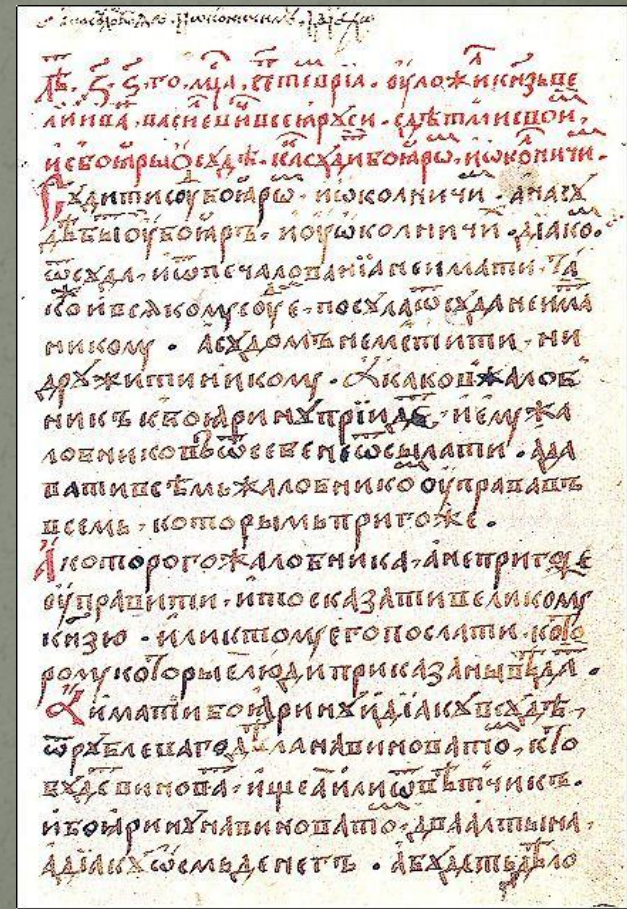 лѣ. ҂з҃. ѕ҃. го. мⷭ҇ца, сентевріа. оуложи кнзь ве
ликі ива васиевиⷱ всеꙗ руси. с дѣтми свои,
и с боꙗры ѡ судѣ. ка судиⷮ боꙗрѡⷨ. и ѡколничиⷨ.
Судити соуⷣ боꙗрѡⷨ. и ѡколничиⷨ. а на су
дѣ быⷮ оу боꙗръ. и оу ѡколничиⷯ. діакоⷨ.
ѿ суда. и ѿ печалованіа не имати. та
кои всякому соує. посула ѿ суда не има
никому. а судомъ не мстити. ни
дружити никому. А каков жалоб
никъ к боꙗрину прїидеⷮ. и ему жа
лобниковъ ѿ себе не ѿсылати. а да
вати всѣмь жалобникоⷨ оуправа въ
всемь. которымъ пригоже.
А которого жалобника. а непригоже
оуправити. и то сказати великому
кнзю. или к тому его послати. кото
рому которые люди приказаны вѣда.
А имати боꙗрину и діаку в судѣ,
ѿ рублеваго дѣла на виноватоⷨ, кто
будеⷮ винова. ищеа или ѿвѣтчикъ.
и боꙗрину на виноватоⷨ. два алтына.
а діаку осмь денегъ. а будеть дѣло